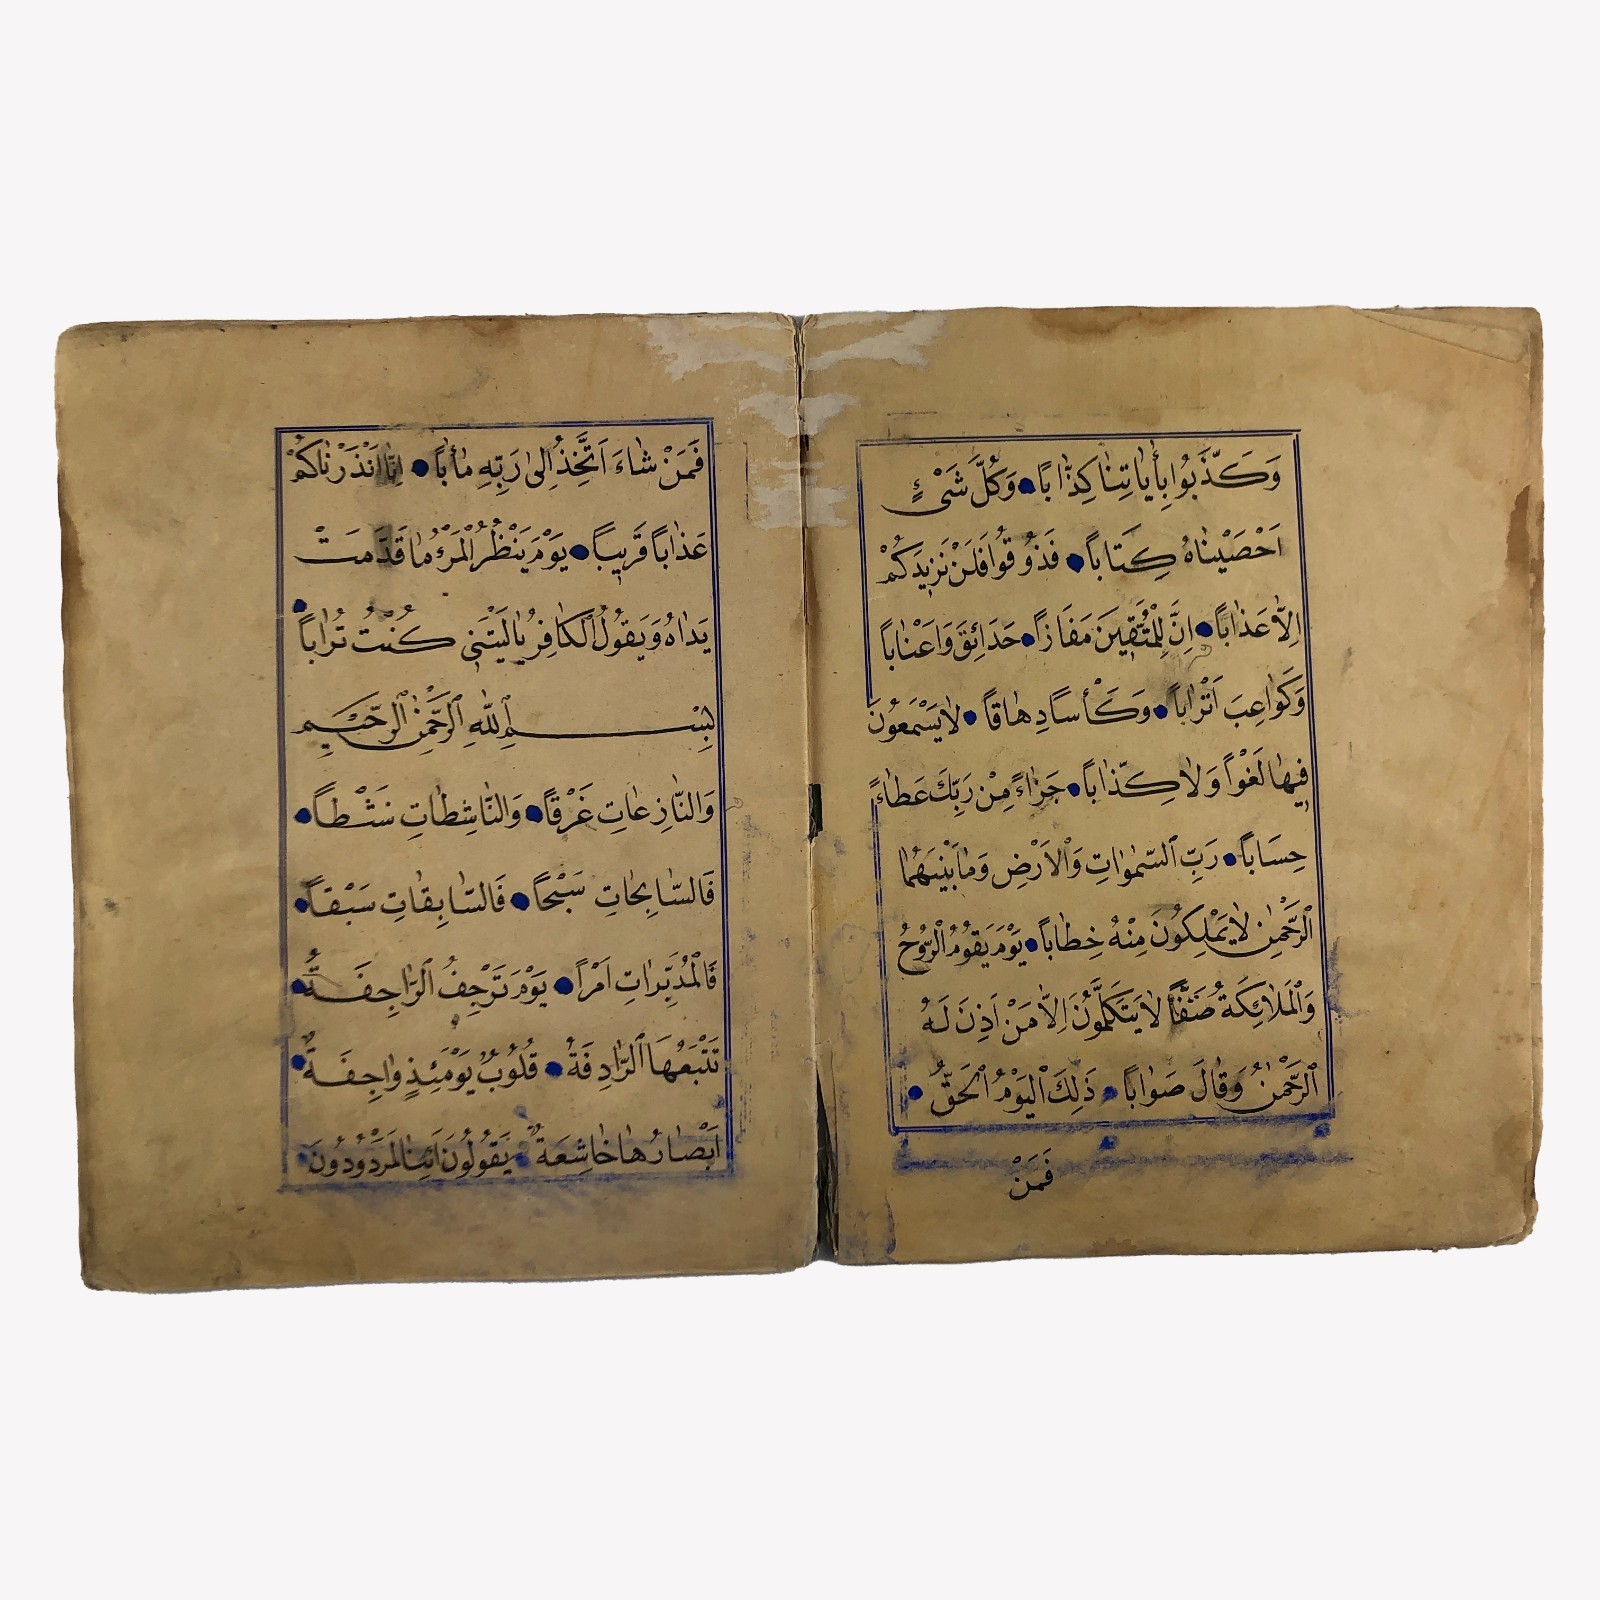 وَكَذَّبُوا بِأٰيَاتِنَا كِذَّابًا ● وَكُلَّ شَىْءٍ
اَحْصَيْنَاهُ كِتَاباً ● فَذُوقُوا فَلَنْ نَزِيدَكُمْ
اِلاَّ عَذَاباً ● اِنَّ لِلْمُتَّقِينَ مَفَازاً ● حَدَائِقَ وَاَعْنَاباً
وَكَوَاعِبَ اَتْرَاباً ● وَكَأْسًا دِهَاقًا ● لاَيَسْمَعُونَ
فِيهَا لَغْواً وَلاَ كِذَّاباً ● جَزَاءً مِنْ رَبِّكَ عَطَاءً
حِسَاباً ● رَبِّ السَّمٰوَاتِ وَالْاَرْضِ وَمَا بَيْنَهُمَا
الرَّحْمٰنِ لاَيَمْلِكُونَ مِنْهُ خِطَاباً ● يَوْمَ يَقُومُ الرُّوحُ
وَالْمَلَائِكَةُ صَفًّا لاَيَتَكَلَّمُونَ اِلاَّ مَنْ اَذِنَ لَهُ
الرَّحْمٰنُ وَقَالَ صَوَاباً ● ذٰلِكَ الْيَوْمُ الْحَقُّ ●
فَمَنْ
فَمَنْ شَاءَ اتَّخَذَ اِلىٰ رَبِّهِ مَأٰباً ● اِنَّا اَنْذَرْنَاكُمْ
عَذَاباً قَرِيباً ● يَوْمَ يَنْظُرُ الْمَرْءُ مَا قَدَّمَتْ
يَدَاهُ وَيَقُولُ الْكَافِرُ يَالَيْتَنِى كُنْتُ تُرَاباً ●
بِسْمِ اللّٰهِ الرَّحْمٰنِ الرَّحِيمِ
وَالنَّازِعَاتِ غَرْقًا ● وَالنَّاشِطَاتِ نَشْطاً ●
فَالسَّابِحَاتِ سَبْحًا ● فَالسَّابِقَاتِ سَبْقاً ●
فَالْمُدَبِّرَاتِ اَمْراً ● يَوْمَ تَرْجُفُ الرَّاجِفَةُ ●
تَتْبَعُهَا الرَّادِفَةُ ● قُلُوبٌ يَوْمَئِذٍ وَاجِفَةٌ ●
اَبْصَارُهَا خَاشِعَةٌ ● يَقُولُونَ اَئِنَّا لَمَرْدُودُونَ